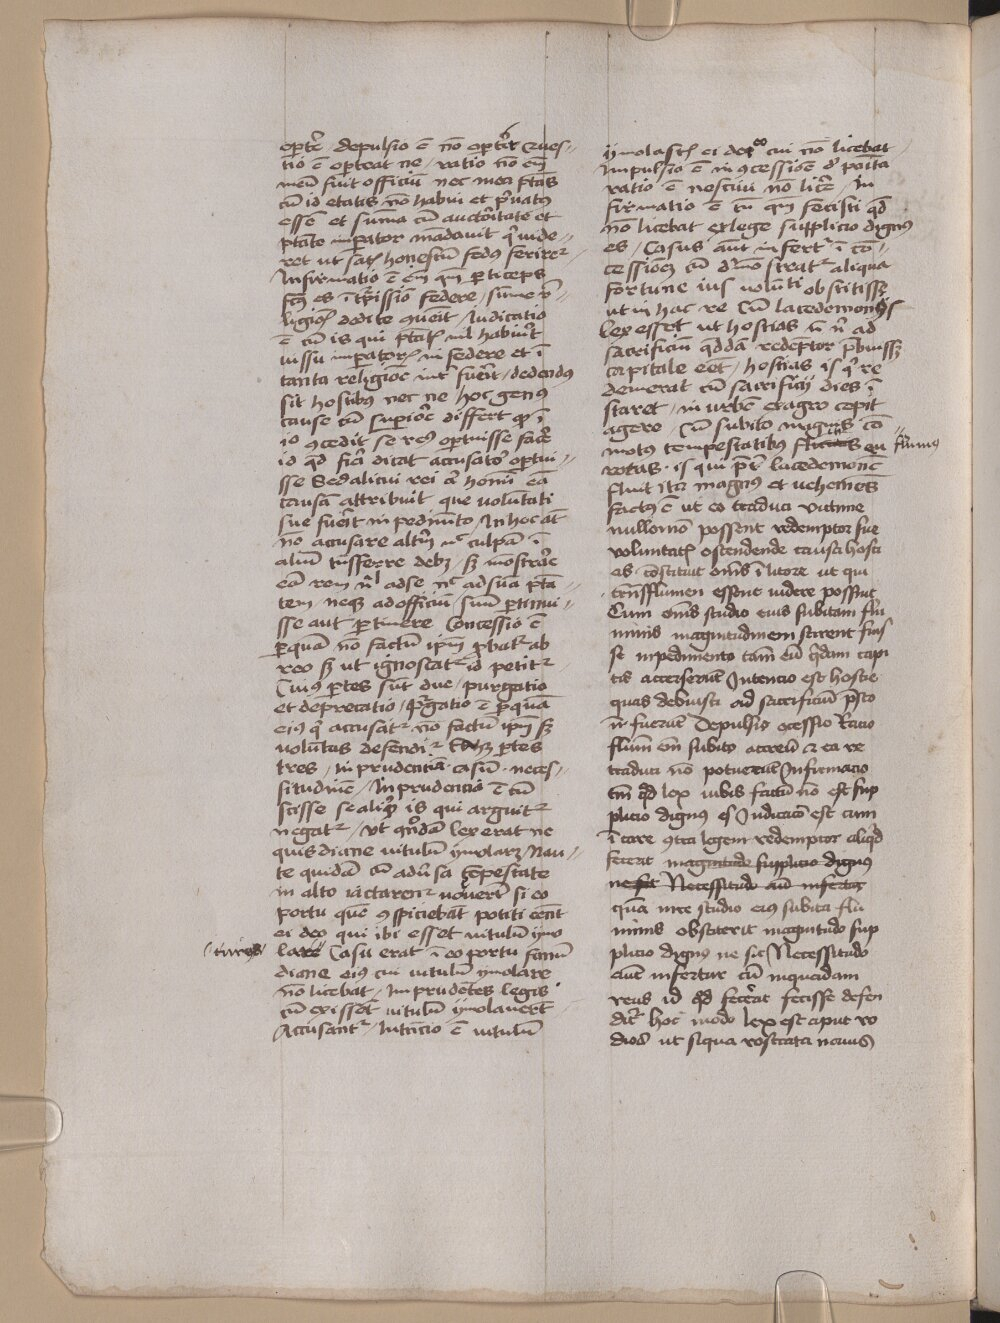 oportꝫ / depulsio ē nō oportꝫ Ques-
tio ē oporteat ne / ratio nō em̄
meū fuit officiū nec mea ptās
cū id etatis nō habui et pͥuatꝯ
essē et suma cū auctoritate et
ptāte imperator mandauit qͥ uide-
ret ut satꝭ honestū fedus feriretꝛ
Infirmatio ē em̄ qm̄ perticeps
fcꝯ es ī tr̄pissiō federe / sume re-
ligiōe dedi te queit / Iudicatio
ē cū is qui ptātꝭ nil habuerit
iussu imperatorꝭ in federe et ī
tanta religiōe int̄ fuerit / dedendus
sit hostibꝫ nec ne / hoc genꝯ
cause cū superiōe differt qꝫ ī
io ꝯcedit se reꝯ oportuisse facē
id qd̄ fieri dicat accusator oportui-
sse Sed alicui rei aͭ homī eā
causaꝫ attribuit que volūtati
sue fuerit inpedimēto / In hoc aūt
nō accusare altꝫ nͨ culpā ī
aliū transferre debꝫ / sꝫ mōstrare
eā rem nͥl ad se nͨ ad suā ptā-
tem neqꝫ ad officiū suū pertinui-
sse aut pertinere Concessio ē
perquā nō factū ipm̄ ꝓbatꝛ ab
reo sꝫ ut ignoscatꝛ id petitꝛ
Cuiꝯ pertes sūt due / purgatio
et deprecatio / Purgatio ē per quā
eiꝯ qͥ accusatꝛ nō factū ipm̄ sꝫ
voluntas defenditꝛ Ea hꝫ pertes
tres / inprudentiā · casū · neces-
situdinē / Inprudencia ē cū
scisse se aliqͥd is qui arguitꝛ
negatꝛ / Vt qn̄dā lex erat ne
quis diane uitulū ymolarꝫ / Nau-
te quidā cū aduersa tempestate
in alto iactarentꝛ uouerūt si eo
portu quē ꝯspiciebāt potiti eēnt
ei deo qui ibi esset uitulū ymo
laros lare Casu erat ī eo portu fanū
diane eiꝯ cui uitulū ymolare
nō licebat / Inprudētes legis
cū exissēt uitulū ymolauerūt
Accusantꝛ / Intēcio ē uitulū
ymolastꝭ ei deo cui nō licebat
Impulsio ē in ꝯcessione de poīta
ratio ē nesciui nō licere / In
firmatio ē tn̄ qm̄ fecisti qd̄
nō licebat ex lege supplicio dignꝯ
es / Casus aūt infertꝛ ī cō-
cessiōeꝫ cū demōstratꝛ aliqua
fortune ius uolūti obstitissꝫ
ut in hac re Cū lacedemoniis
lex esset ut hostias n̄ n̄ ad
sacrificiū qd̄dā redēptor prebuissꝫ
capitale eēt / hostias is qͥ re
demerat cū sacrificij dies ī
staret / in urbē ex agro cepit
agere / Cū subito magnis cō-
motus tempestatibꝯ fluuius eu fluuiꝯ
rotas · is qui preter lacedemonē
fluit ita magnꝯ et uehemēs
factꝯ ē ut eo traduci uictime
nullomō possent redemptor sue
voluntatꝭ ostendende causa hosti
as constituit om̄s ī litore ut qui
transflumen essent uidere possent
Cum om̄s studio eius subitam flu
minis magnitudinem scirent fuis
se inpedimento tamē eū quidam capi
tis accerserūt Intencio est hostie
quas debuisti ad sacrificiū presto
n̄ fuerūt Depulsio ꝯcessio Racio
flumē em̄ subito accreuit ea re
traduci nō potuerūt Infirmacio
tn̄ qd̄ lex iubis factū nō est sup
plicio dignus es Iudicacō est cum
ī care ꝯtra legem redemptor aliqd̄
fecerat magnitudo supplicio dignus
ne sit Necessitudo aūt infertꝛ
quā in re studio eius subita flu
minis obstiterit magnitudo sup
plicio dignꝯ ne sit Necessitudo
aūt infertur cū inquidam
reus id qd̄ fecerat fecisse defen
ditꝛ hoc modo lex est aput ro
dios ut siqua rostrata nauis